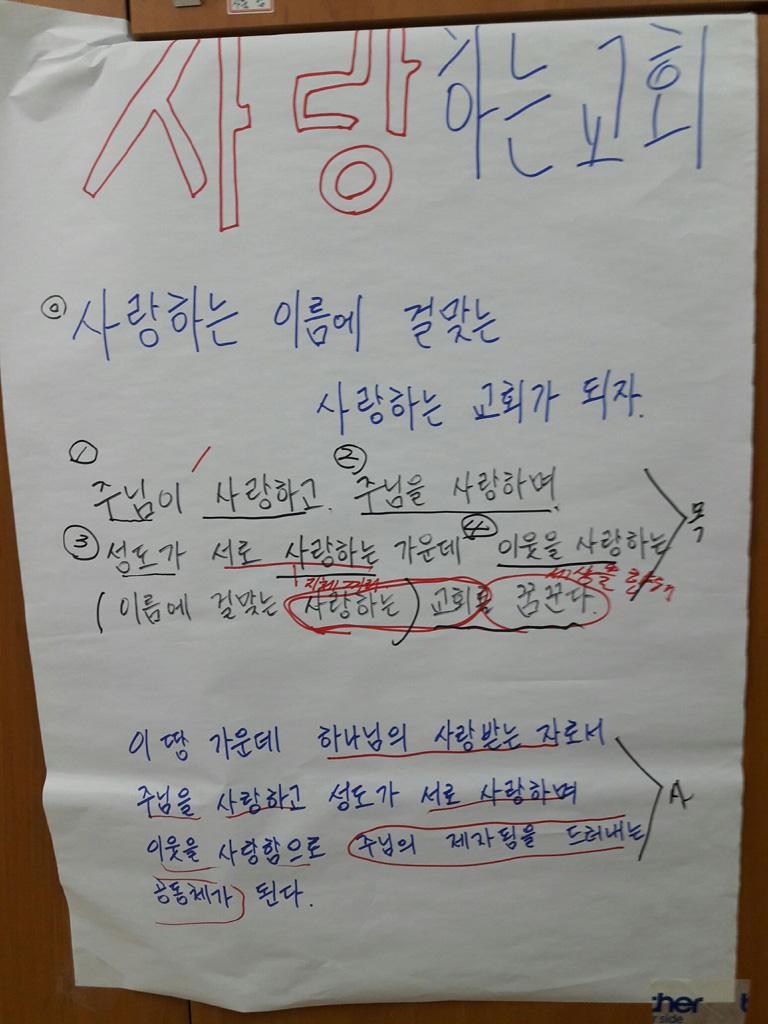 사랑하는교회
ⓞ 사랑하는 이름에 걸맞는
사랑하는 교회가 되자.
① ②
주님이 사랑하고. 주님을 사랑하며.
③ 성도가 서로 사랑하는 가운데 ④ 이웃을 사랑하는
(이름에 걸맞는 사랑하는) 교회를 꿈꾼다.
이 땅 가운데 하나님의 사랑받는 자로서
주님을 사랑하고 성도가 서로 사랑하며 A
이웃을 사랑함으로 주님의 제자됨을 드러내는
공동체가 된다.
ther
r side